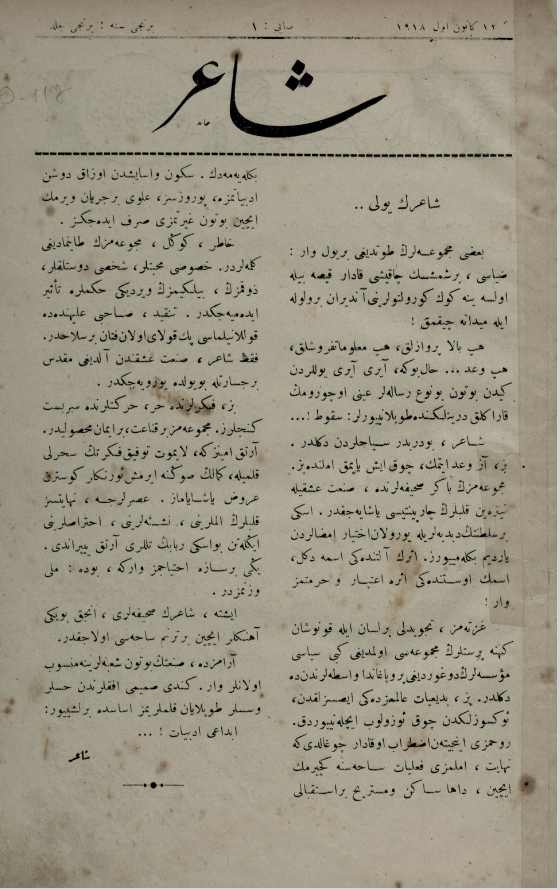 ١٢ كانون اول ١٩١٨
صايى : ١
برنجى سنه : برنجى جلد
شاعر
شاعرك يولى ..
بعضى مجموعه‌لرك طوتديغى بريول وار :
ضياسى ، برشمشك چاقيشى قادار قيصه بيله
اولسه ينه كوك كورولتولرينى آنديران برولوله
ايله ميدانه چيقمق !
هپ بالا پروازلق، هپ معلوماتفروشلق،
هپ وعد ... حال‌بوكه، آيرى آيرى يوللردن
كيدن بوتون بونوع رساله‌لر عينى اوچورومك
قاراكلق درينلكنده طوپلانييورلر: سقوط !...
شاعر ، بودربدر سياحلردن دكلدر .
بز، آز وعد ايتمك، چوق ايش ياپمق املنده‌يز.
مجموعه‌مزك باكر صحيفه‌لرنده ، صنعت عشقيله
تيتره‌ين قلبلرك چارپينتيسى ياشايه‌جقدر. اسكى
برسلطنتك دبدبه‌لريله يورولان اختيار امضالردن
يارديم بكله‌مييورز. اثرك آلتنده‌كى اسمه دكل،
اسمك اوستنده‌كى اثره اعتبار و حرمتمز
وار !
غزته‌مز ، تجويدلى برلسان ايله قونوشان
كهنه پرستلرك مجموعه‌سى اولمديغى كبى سياسى
مؤسسه‌لرك دوغورديغى پروپاغاندا واسطه‌لرندن‌ده
دكلدر. بز، بديعيات عالمزده‌كى ايصسزلقدن،
نوكسوزلكدن چوق ئوزولوب ايچله‌نييوردق.
روحمزى اينجيتن اضطراب اوقادار چوغالدى‌كه
نهايت ، املمزى فعليات ساحه‌سنه كچيرمك
ايچين ، داها ساكن ومستريح براستقبالى
بكله‌يه‌مه‌دك . سكون واسايشدن اوزاق دوشن
ادبياتمزه، پوروزسز، علوى برجريان ويرمك
ايچين بوتون غيرتمزى صرف ايده‌جكز .
خاطر ، كوكل ، مجموعه‌مزك طانيماديغى
كلمه‌لردر. خصوصى محبتلر، شخصى دوستلقلر،
ذوقمزك ، بيلكيمزك ويرديكى حكملره تأثير
ايده‌ميه‌جكدر . تنقيد ، صاحبى عليهنده‌ده
قوللانيلماسى پك قولاى اولان فتان برسلاحدر.
فقط شاعر ، صنعت عشقندن آلديغى مقدس
برجسارتله بويولده يورويه‌جكدر .
بز، فكرلرنده حر، حركتلرنده سربست
كنجلرز. مجموعه‌مز برقناعت، برايمان محصوليدر.
آرتق امينزكه، لايموت توفيق فكرتك سحرلى
قلميله، كمالك صوكنه ايرمش ئورنكلر كوسترن
عروض ياشاياماز . عصرلرجه ، نهايتسز
قلبلرك الملرينى ، نشئه‌لرينى ، احتراصلرينى
ايكله‌تن بواسكى ربابك تللرى آرتق ييراندى .
يكى برسازه احتياجمز واركه ، بوده : ملى
وزنمزدر .
ايشته ، شاعرك صحيفه‌لرى ، انجق بويكى
آهنكلر ايچين برترنم ساحه‌سى اولاجقدر.
آرامزده ، صنعتك بوتون شعبه‌لرينه منسوب
اولانلر وار . كندى صميمى افقلرندن حسلر
وسسلر طوپلايان قلملريمز اساسده برلشييور:
ابداعى ادبيات ! ...
شاعر